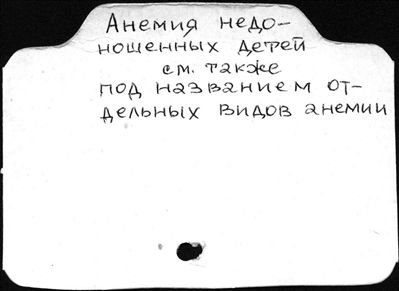 Анемия недо-
ношенных детей
см. также
под названием от-
дельных видов анемии